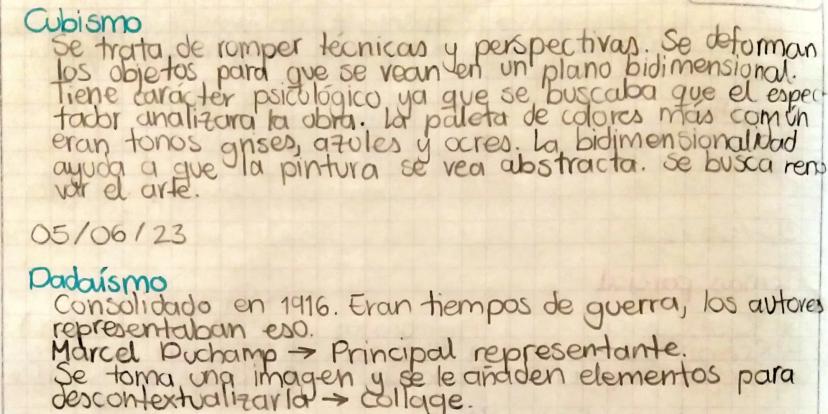 Cubismo
Se trata de romper técnicas y perspectivas. Se deforman
los objetos para que se vean en un plano bidimensional.
Tiene carácter psicológico ya que se buscaba que el espec-
tador analizara la obra. La paleta de colores más común
eran tonos grises, azules y ocres. La bidimensionalidad
ayuda a que la pintura se vea abstracta. Se busca reno
var el arte.
05/06/23
Dadaísmo
Consolidado en 1916. Eran tiempos de guerra, los autores
representaban eso.
Marcel Duchamp → Principal representante.
Se toma una imagen y se le añaden elementos para
descontextualizarla → collage.